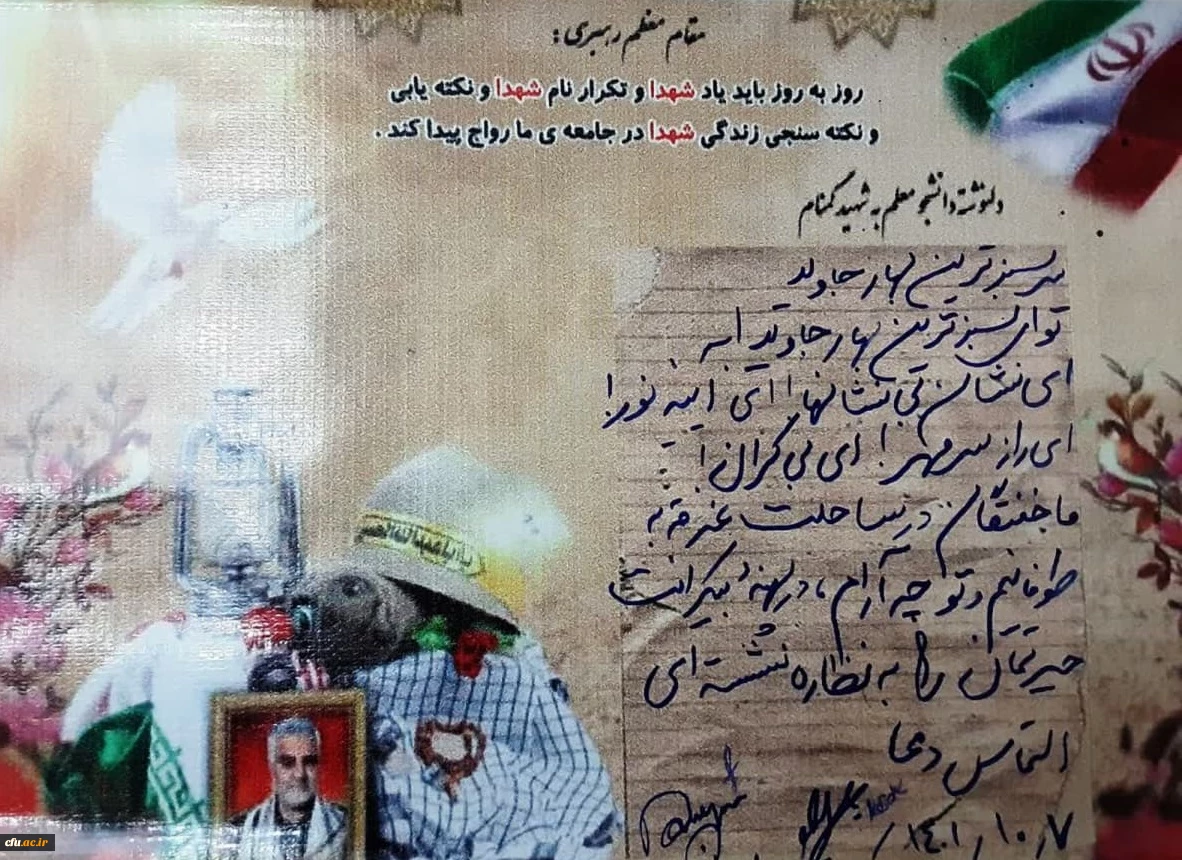 مقام معظم رهبری:
روز به روز باید یاد شهدا و تکرار نام شهدا و نکته یابی
و نکته سنجی زندگی شهدا در جامعه ی ما رواج پیدا کند.
دلنوشته دانشجو معلم به شهید گمنام
سرسبزترین بهار جاوید
توای سبزترین بهار جاوید!
ای نشان بی نشانها! ای آیینه نور!
ای راز سر مهر! ای بی کران!
ما خفتگان در ساحلت غرقه به
طوفانیم و تو چه آرام، در پهنهٔ بیکرانت
حیرتمان را به نظاره نشسته ای
التماس دعا
۱۴۰۱/۱۰/۷
cfu.ac.ir